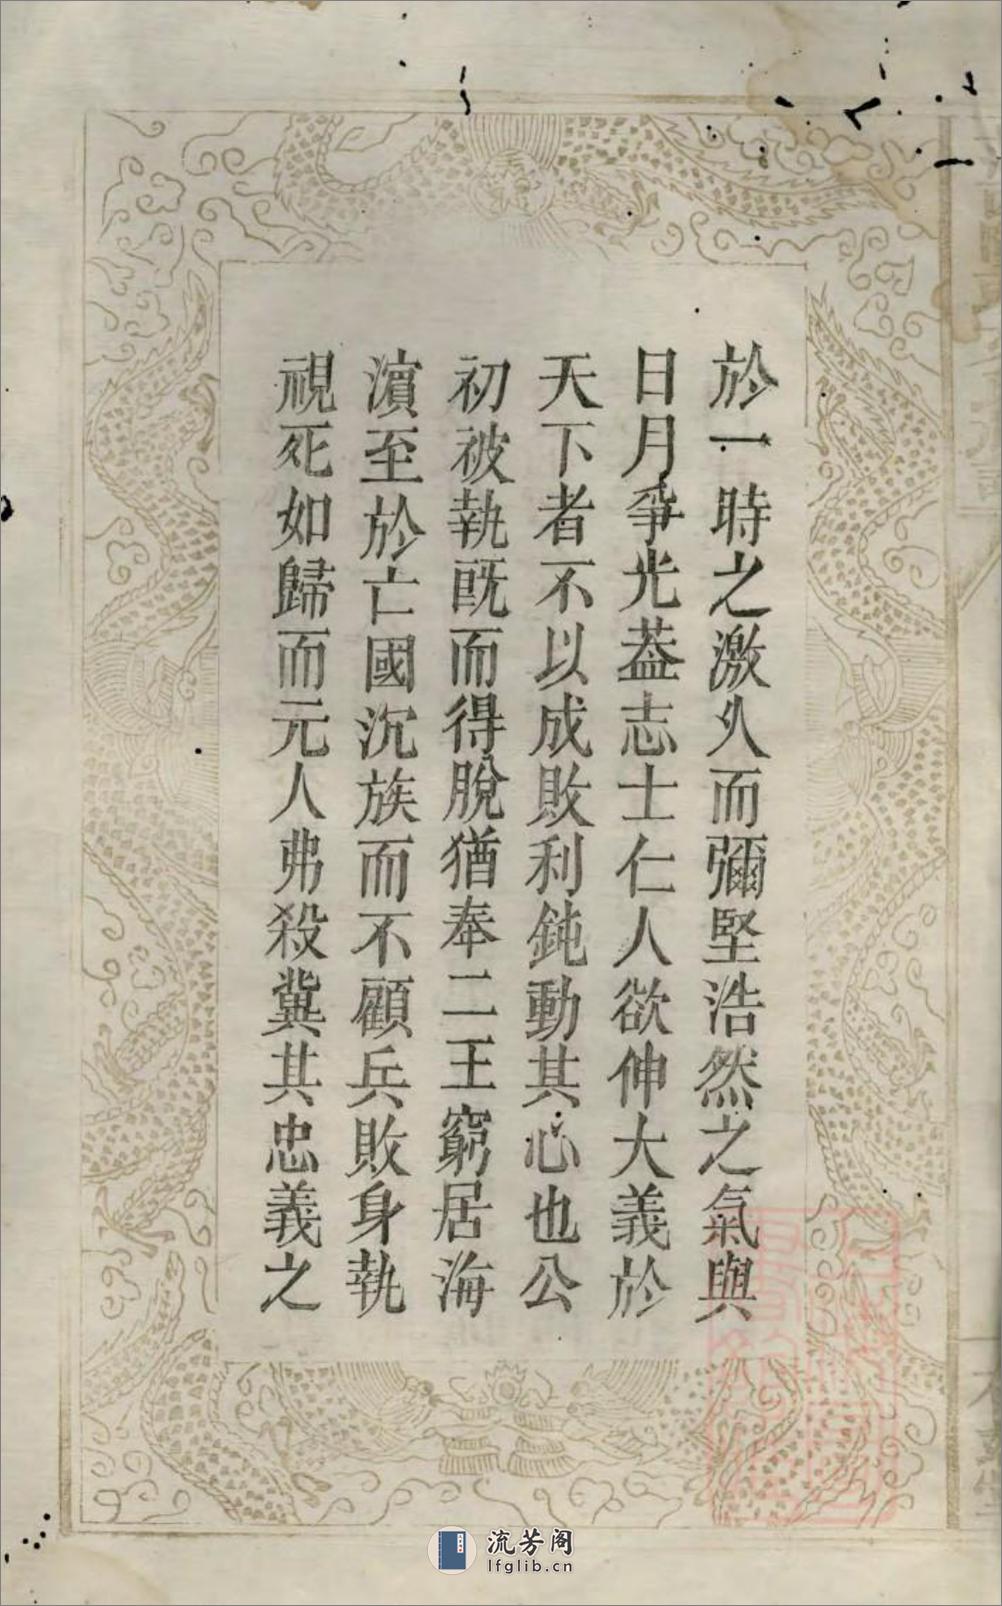 於一時之激久而彌堅浩然之氣與
日月爭光葢志士仁人欲伸大義於
天下者不以成敗利鈍動其心也公
初被執旣而得脫猶奉二王窮居海
濵至於亡國沉族而不顧兵敗身執
視死如歸而元人弗殺冀其忠義之
流芳阁
lfglib.cn